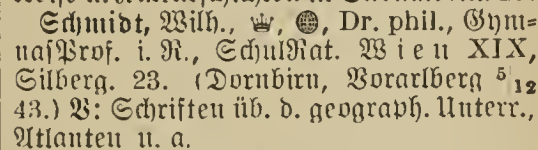 Schmidt, Wilh., Dr. phil., Gym=
nasProf. i. R., SchulRat. Wien XIX,
Silberg. 23. (Dornbirn, Vorarlberg 5/12
43.) V: Schriften üb. d. geograph. Unterr.,
Atlanten u. a.